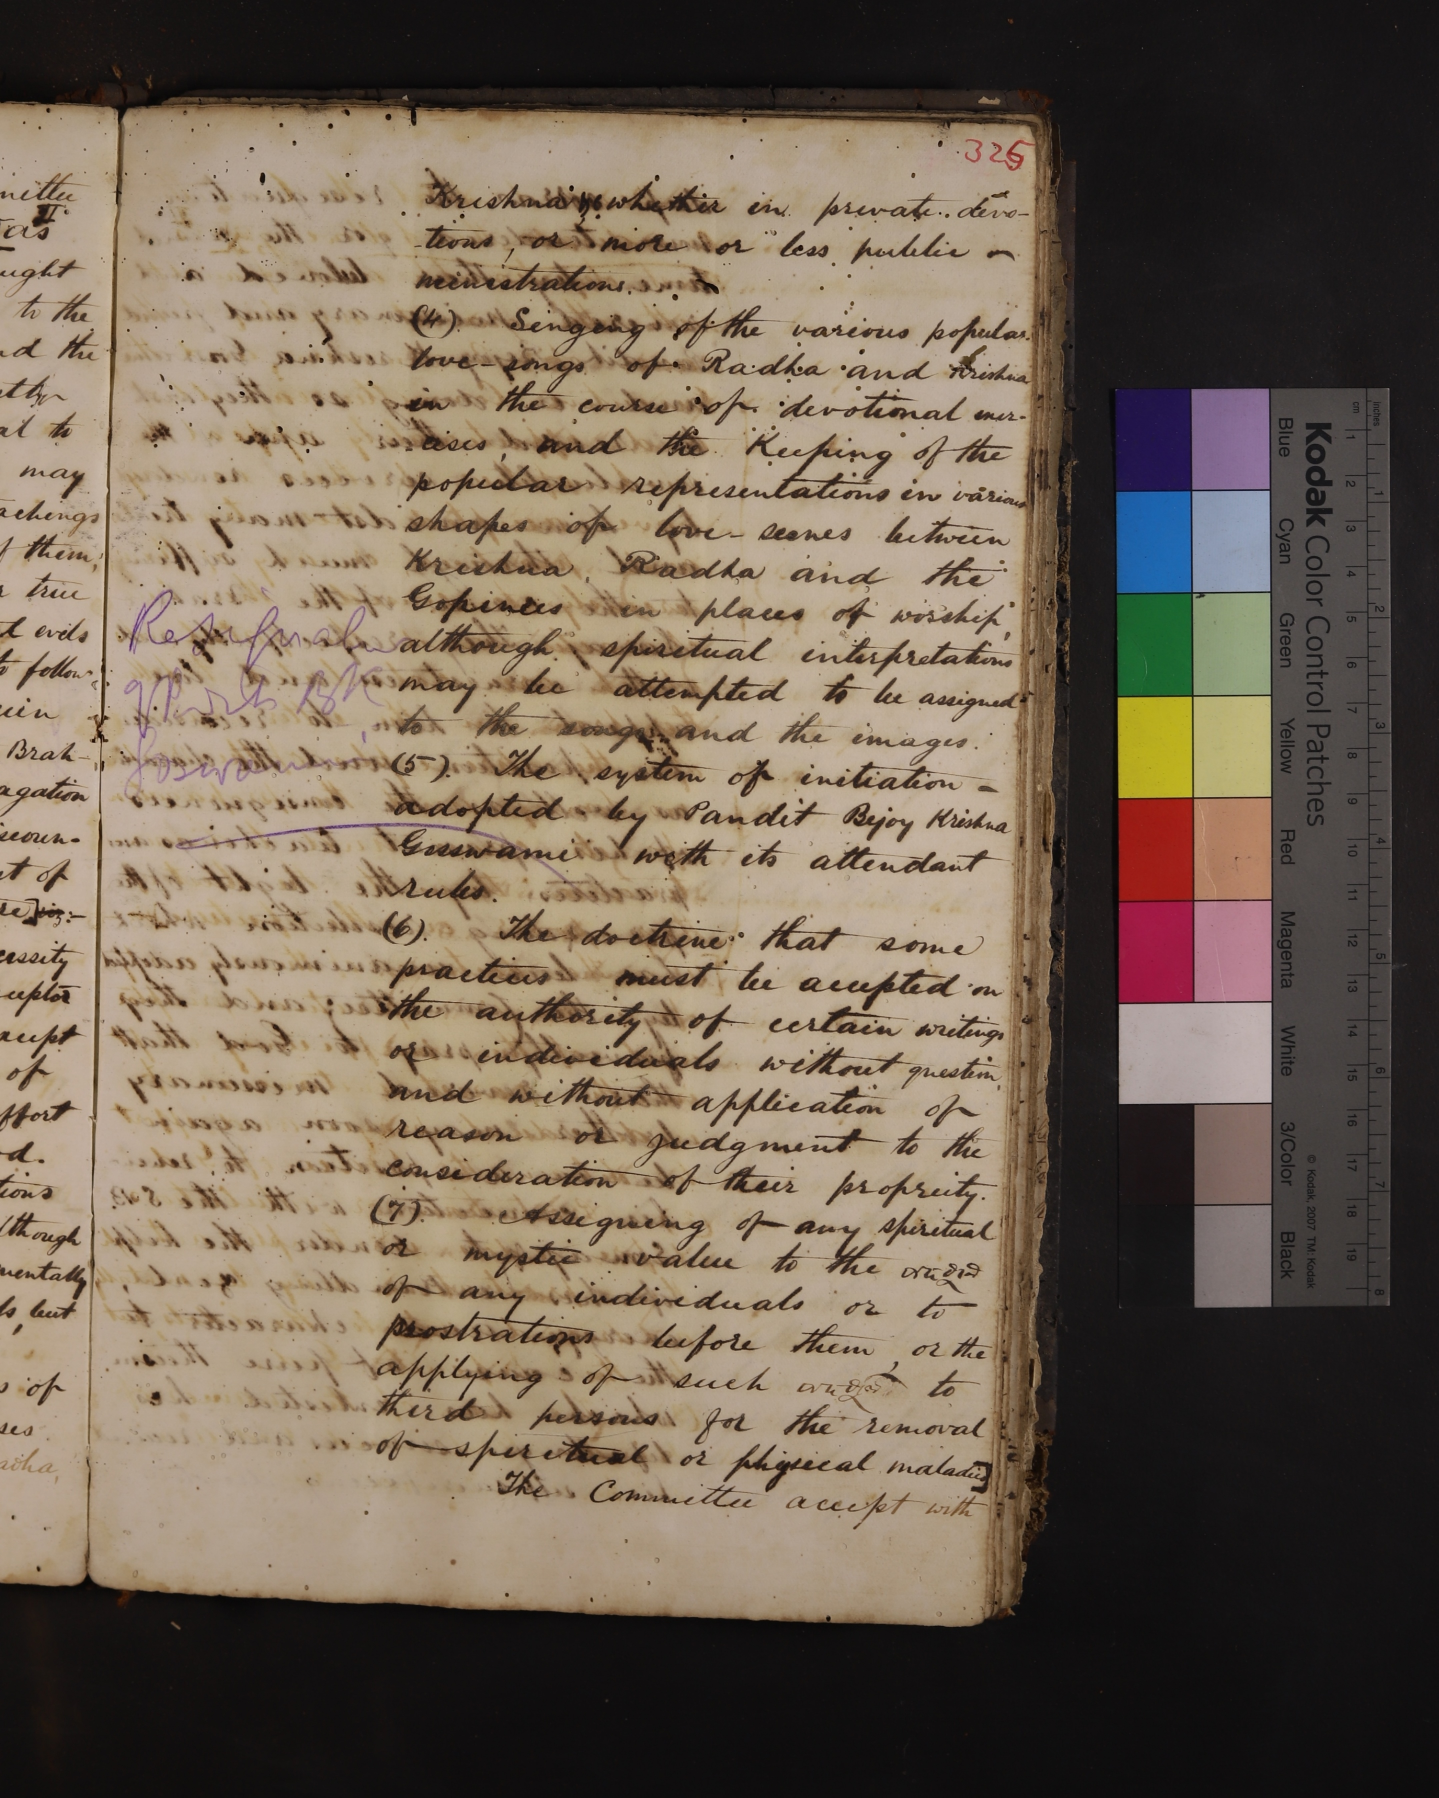 325
Krishna, whether in private devo-
-tions, or more or less public
ministrations.
(4). Singing of the various popular
love-songs of Radha and Krishna
in the course of devotional exer-
cises, and the Keeping of the
popular representations in various
shapes of love-scenes between
Krishna, Radha and the
Gopinees in places of worship,
although spiritual interpretations
may be attempted to be assigned
to the songs and the images.
(5). The system of initiation -
adopted by Pandit Bejoy Krishna
Gosswami with its attendant
rules.
(6). The doctrine that some
practices must be accepted on
the authority of certain writings
or individuals without question,
and without application of
reason or judgment to the
consideration of their propreity.
(7). Assigning of any spiritual
or mystic value to the
of any individuals or to
prostrations before them, or the
applying of such to
third persons for the removal
of spiritual or physical maladies]
The Committee accept with
Resignal
Goswami
mittee
II
as
ught
to the
nd the
al to
may
achings
f them,
r true
l evils
to follow
Brah-
agation
t of
cessity
ceptor
accept
of
effort
d.
tions
lthough
mentally
ls, but
of
ses
adha,
Kodak Color Control Patches
Blue Cyan Green Yellow Red Magenta White 3/Color Black
© Kodak, 2007 TM: Kodak
inches 1 2 3 4 5 6 7 8
cm 1 2 3 4 5 6 7 8 9 10 11 12 13 14 15 16 17 18 19